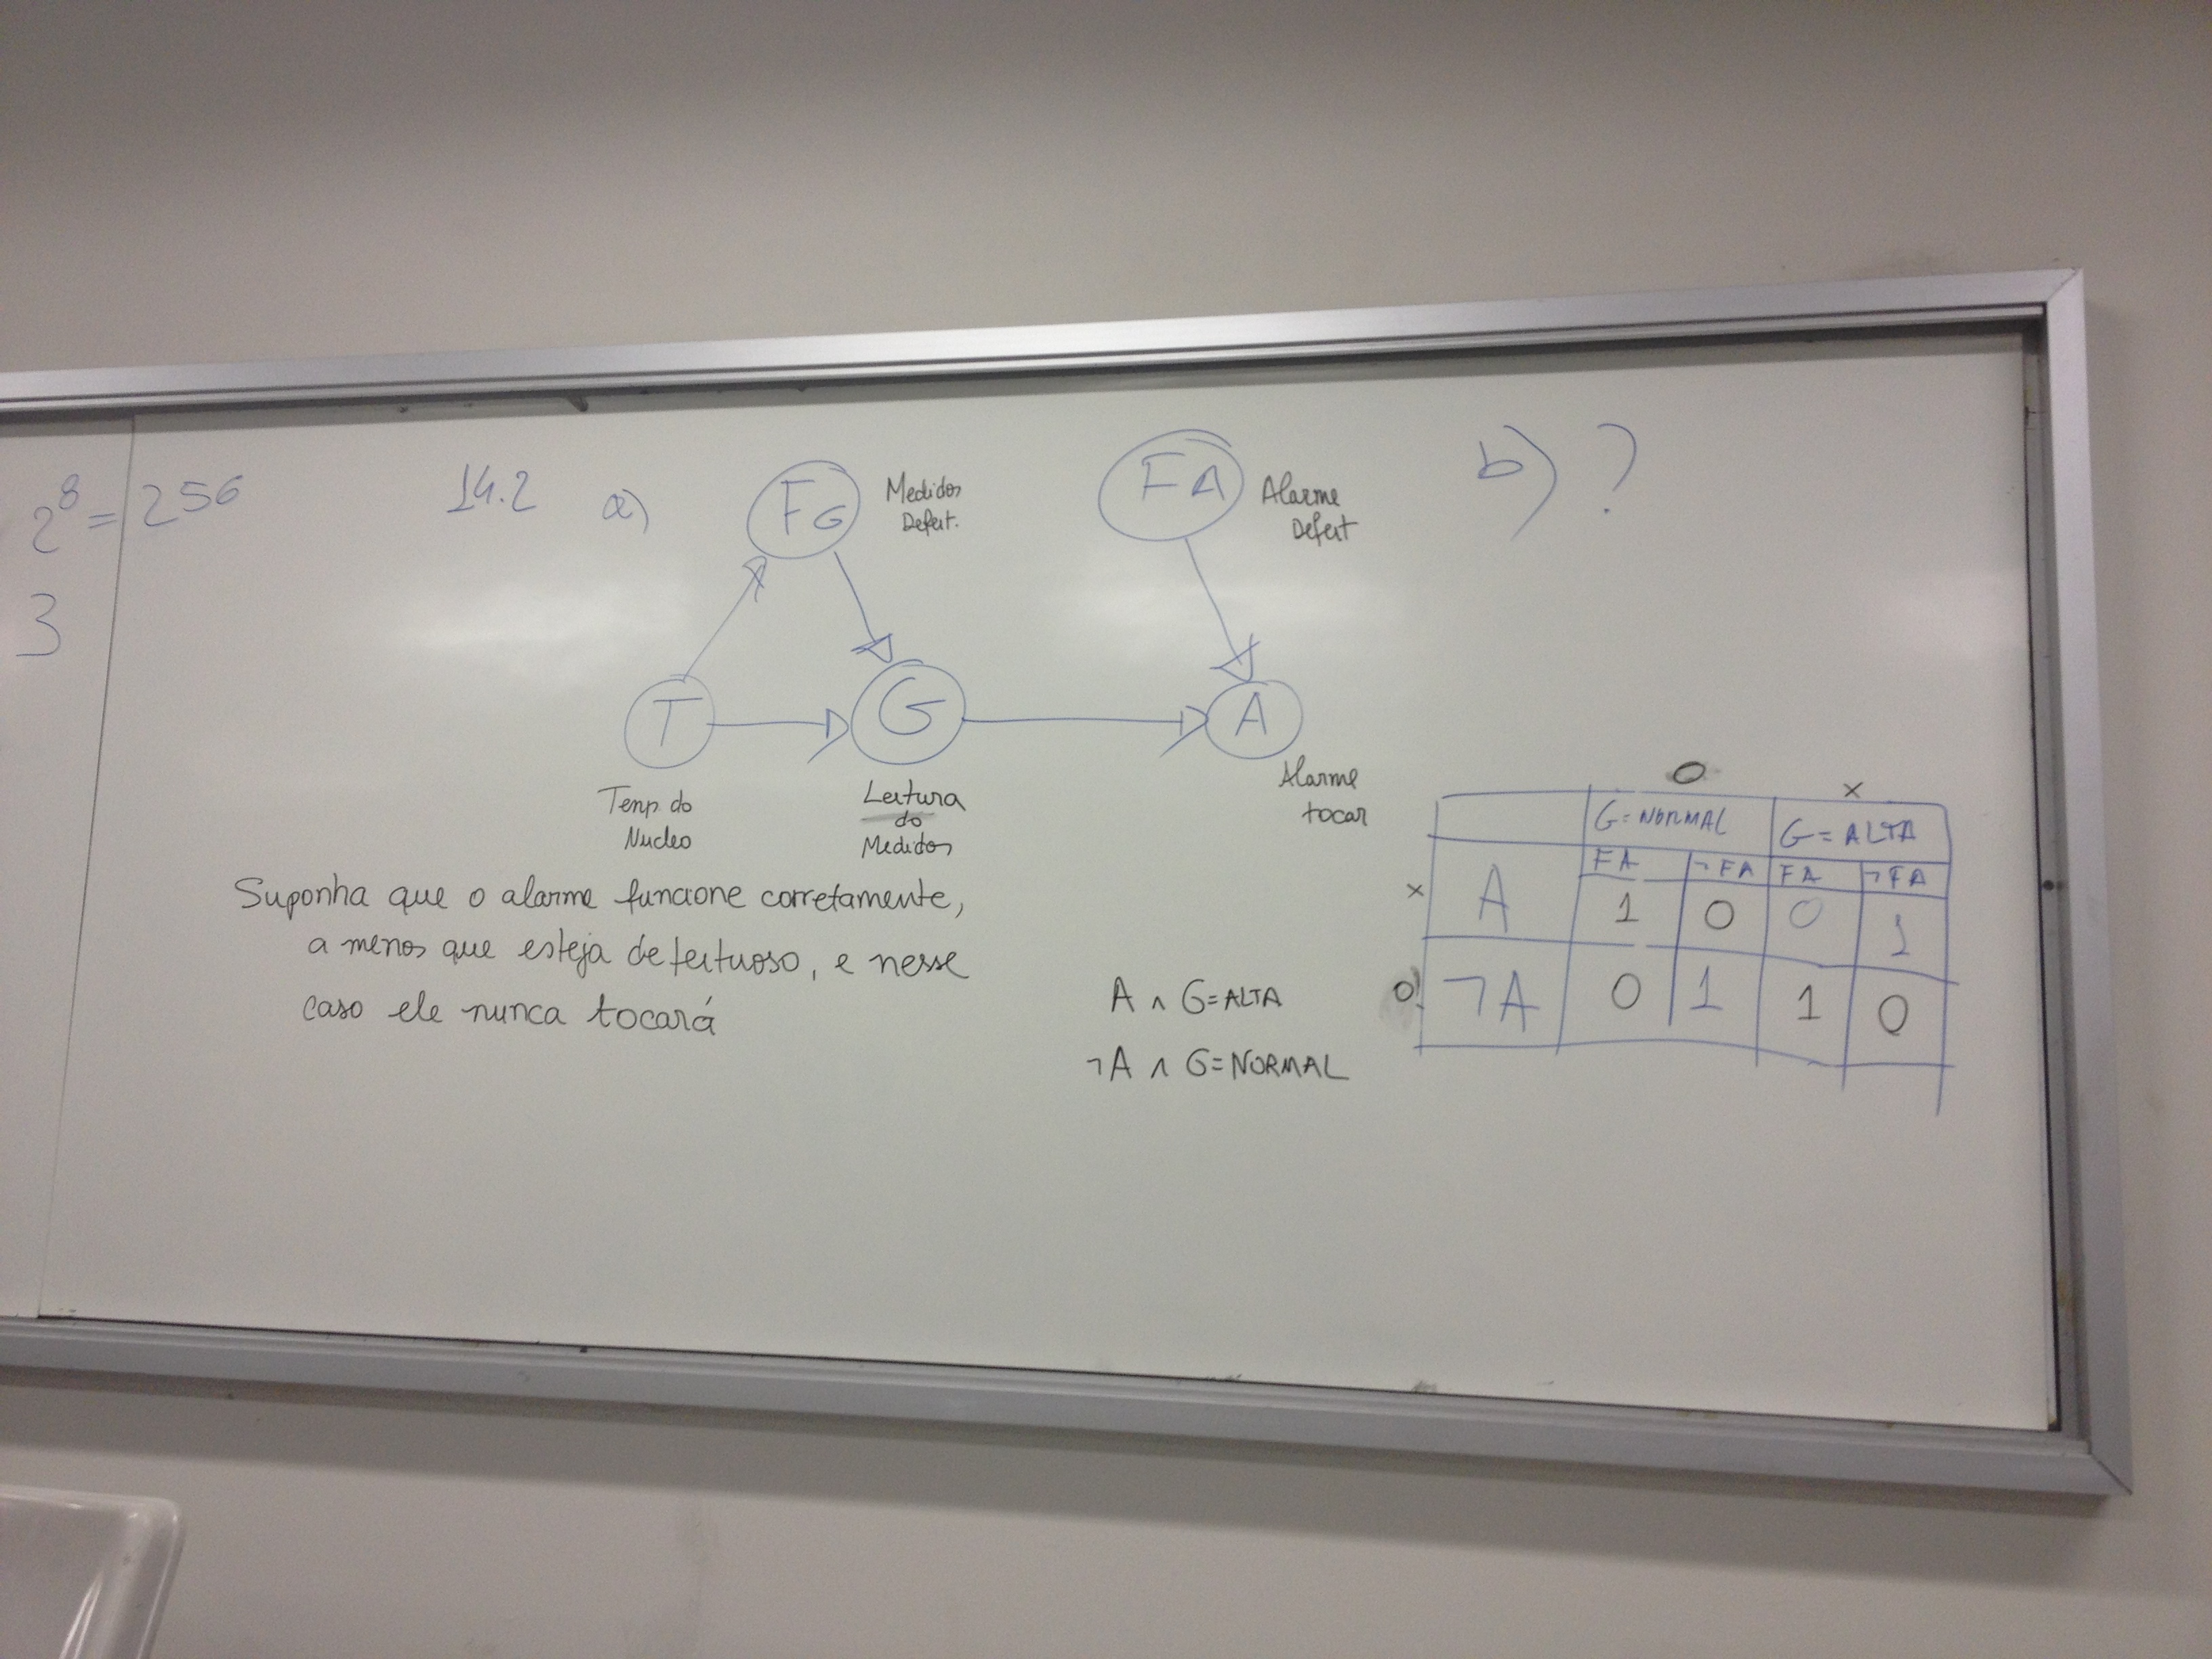 2⁸ = 256
3
14.2 a)
FG
Medidor
Defeit.
FA
Alarme
Defeit
b) ?
T
G
A
Temp. do
Nucleo
Leitura
do
Medidor
Alarme
tocar
Suponha que o alarme funcione corretamente,
a menos que esteja defeituoso, e nesse
caso ele nunca tocará
A ∧ G=ALTA
¬A ∧ G=NORMAL
O x
G=NORMAL G=ALTA
FA ¬FA FA ¬FA
x A 1 0 0 1
O ¬A 0 1 1 0